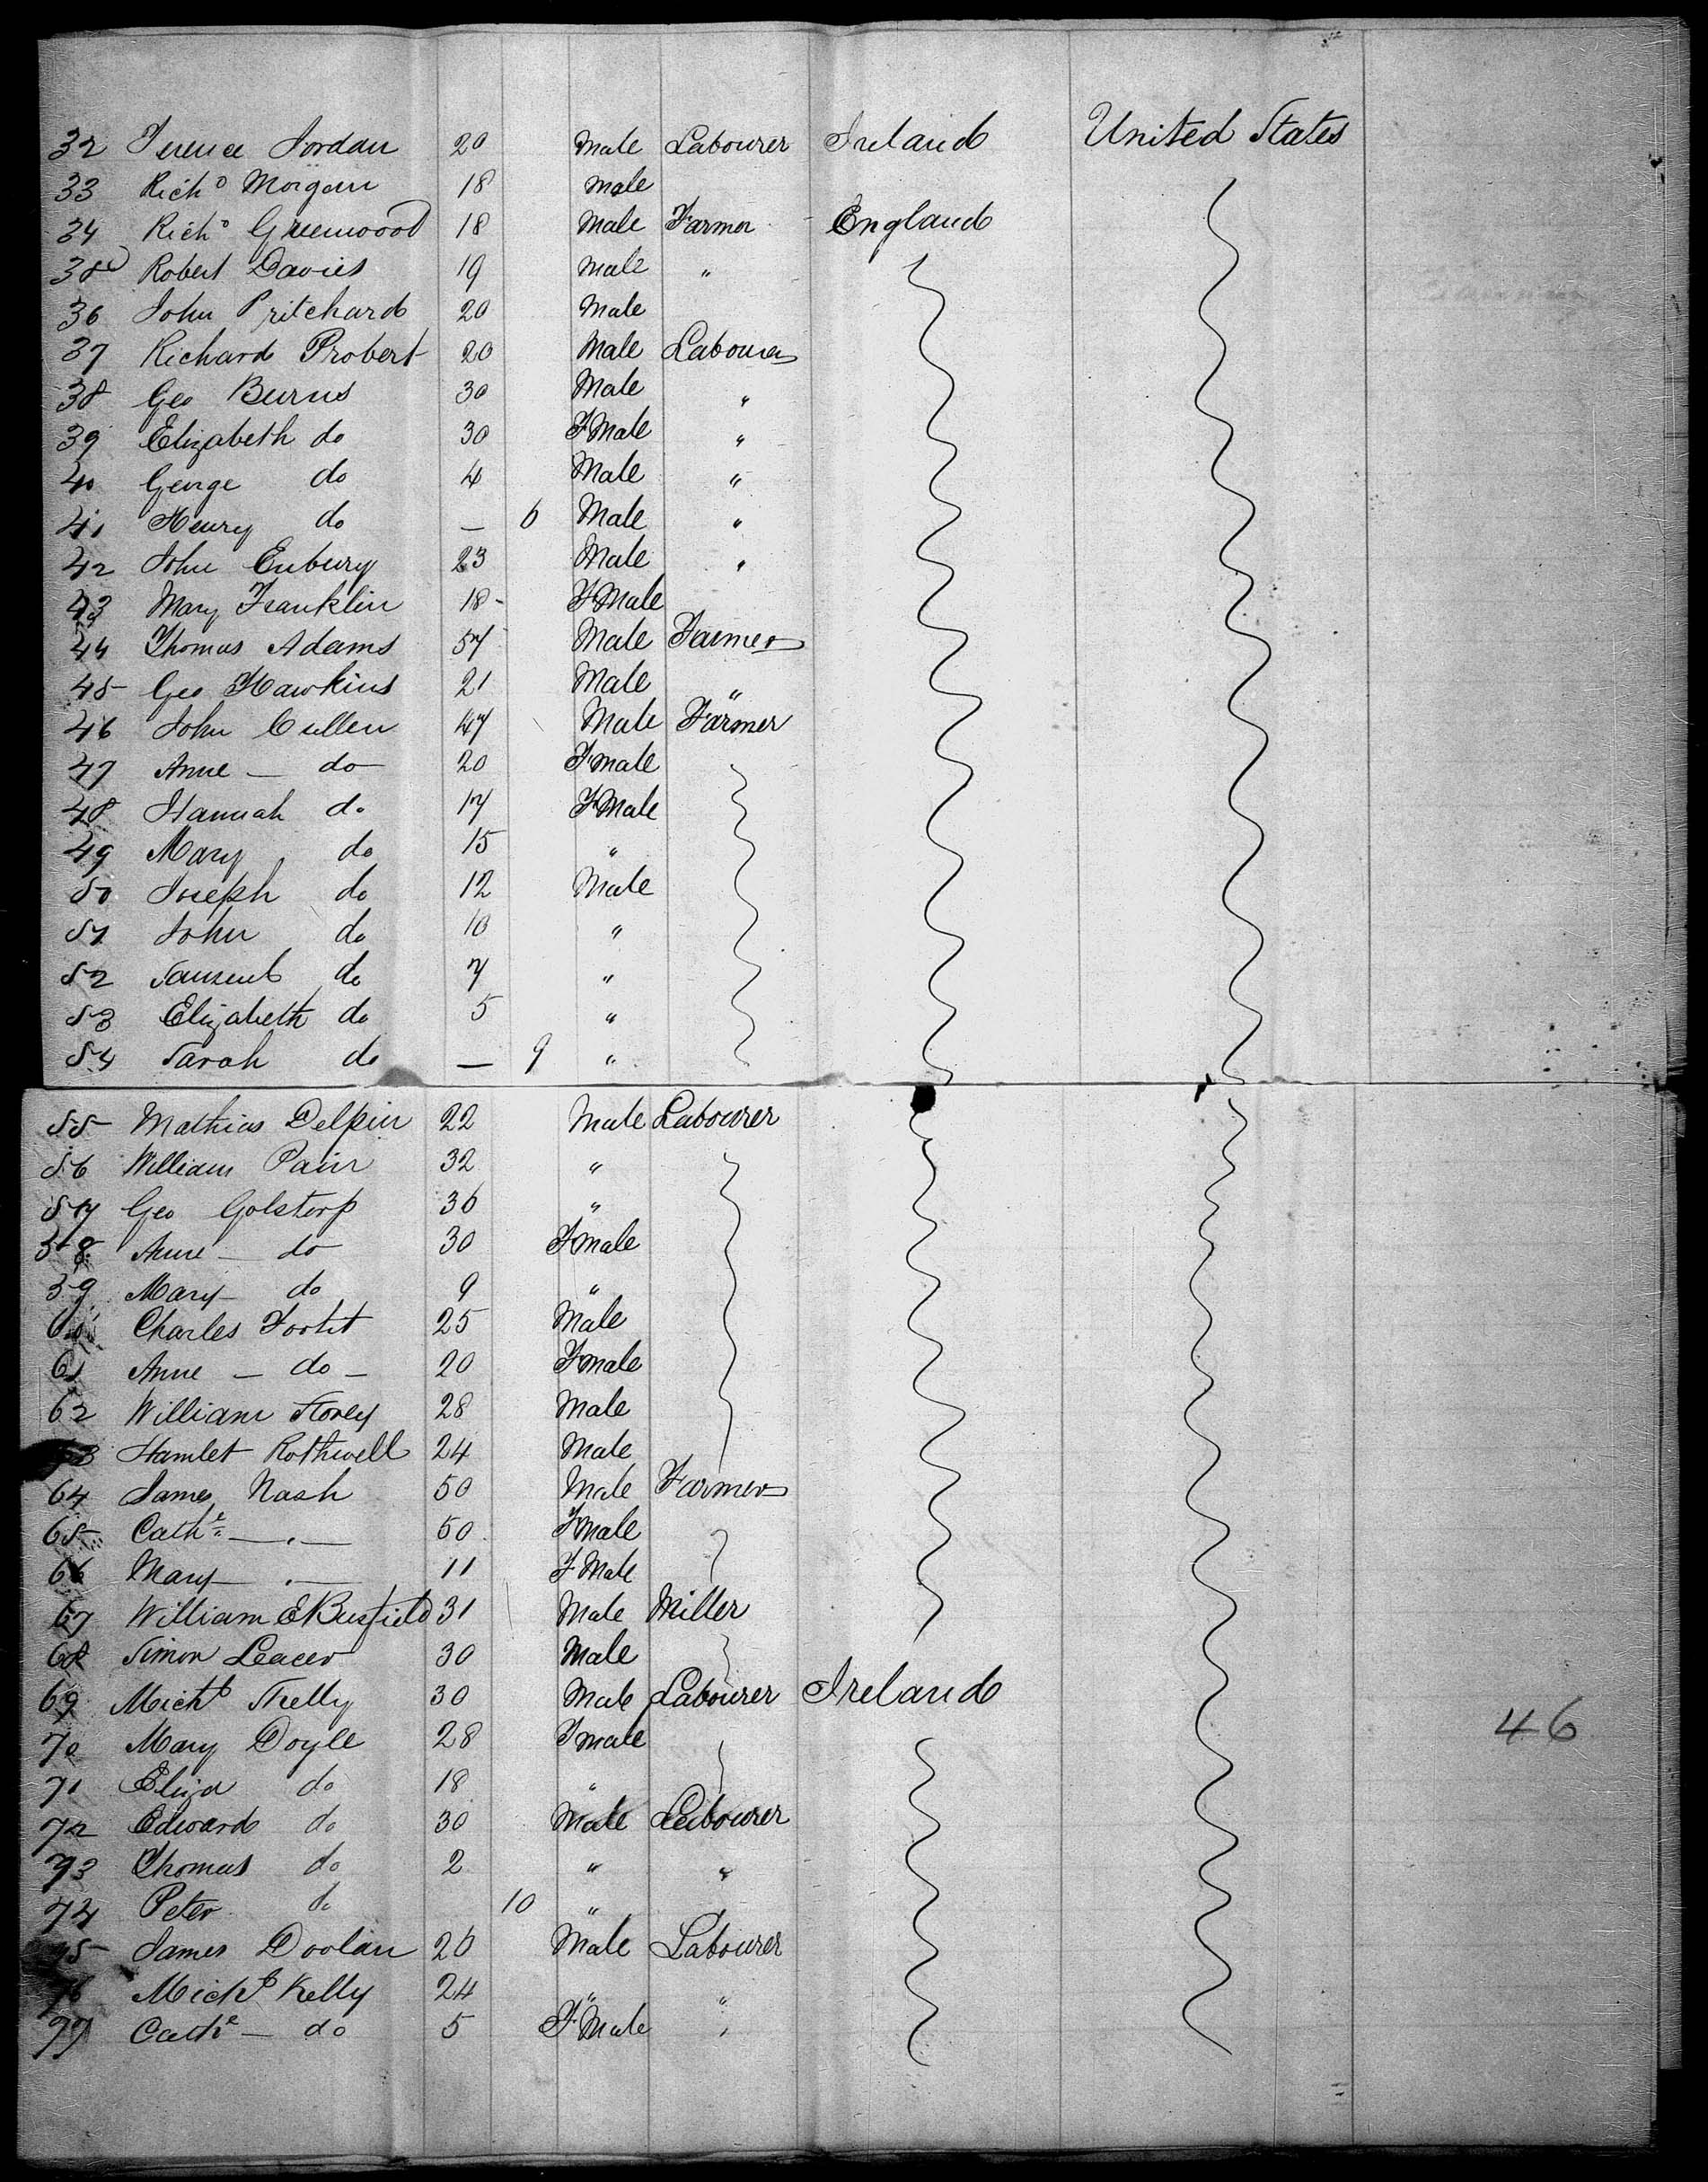 32 Terence Jordan 20 Male Labourer Ireland United States
33 Richd Morgan 18 Male
34 Richd Greenwood 18 Male Farmer England
35 Robert Davies 19 Male "
36 John Pritchard 20 Male
37 Richard Probert 20 Male Labourer
38 Geo Burns 30 Male "
39 Elizabeth do 30 FMale "
40 George do 4 Male "
41 Henry do — 6 Male "
42 John Enbury 23 Male "
43 Mary Franklin 18 - FMale
44 Thomas Adams 57 Male Farmer
45 Geo Hawkins 21 Male "
46 John Cullen 47 Male Farmer
47 Anne — do 20 Fmale
48 Hannah do 17 FMale
49 Mary do 15 "
50 Joseph do 12 Male
51 John do 10 "
52 Samuel do 7 "
53 Elizabeth do 5 "
54 Sarah do — 9 "
55 Mathias Delpin 22 Male Labourer
56 William Pain 32 "
57 Geo Golstorp 36 "
58 Anne — do 30 Fmale
59 Mary do 9 "
60 Charles 25 Male
61 Anne — do — 20 Fmale
62 William Storey 28 Male
63 Hamlet Rothwell 24 Male
64 James Nash 50 Male Farmer
65 Cathe — " — 50 Fmale
66 Mary — " — 11 FMale
67 William E Busfield 31 Male Miller
68 Simon 30 Male
69 Michl Skelly 30 Male Labourer Ireland
70 Mary Doyle 28 Fmale 46
71 Eliza do 18 "
72 Edward do 30 Male Labourer
73 Thomas do 2 " "
74 Peter do 10 "
75 James Doolan 26 Male Labourer
76 Michl Kelly 24 " "
77 Cathe — do 5 FMale "